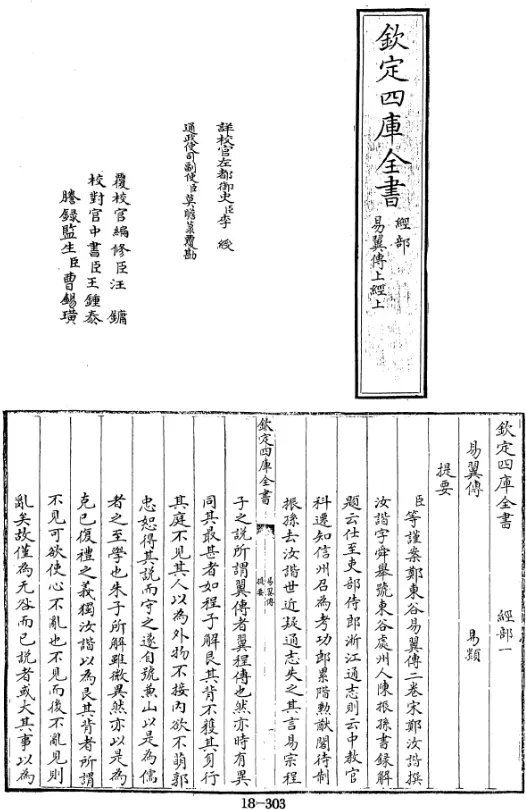 欽定四庫全書
經部
易翼傳上經上
詳校官左都御史臣李綬
通政使司副使臣莫瞻菉覆勘
覆校官編修臣汪鏞
校對官中書臣王鍾泰
謄錄監生臣曹錫璜
欽定四庫全書 經部一
易翼傳 易類
提要
臣等謹案鄭東谷易翼傳二卷宋鄭汝諧撰
汝諧字舜舉號東谷處州人陳振孫書錄解
題云仕至吏部侍郎浙江通志則云中教官
科遷知信州召為考功郎累階勲猷閣待制
振孫去汝諧世近疑通志失之其言易宗程
欽定四庫全書
易翼傳
提要
子之說所謂翼傳者翼程傳也然亦時有異
同其最甚者如程子解艮其背不獲其身行
其庭不見其人以為外物不接內欲不萌郭
忠恕得其說而守之遂自號兼山以是為儒
者之至學也朱子所解雖微異然亦以是為
克已復禮之義獨汝諧以為艮其背者所謂
不見可欲使心不亂也不見而後不亂見則
亂矣故僅為无咎而已說者或大其事以為
18-303